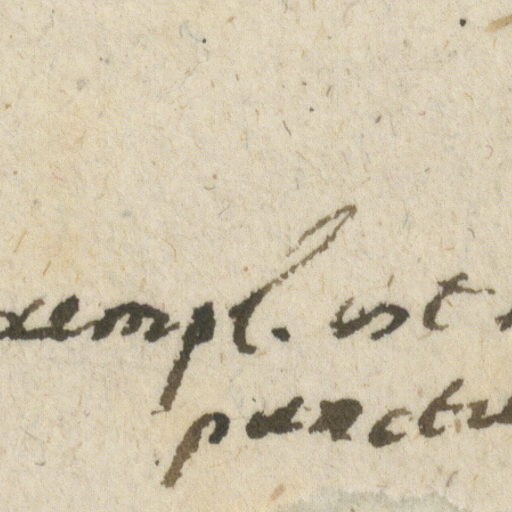 xempl. ist
punctu